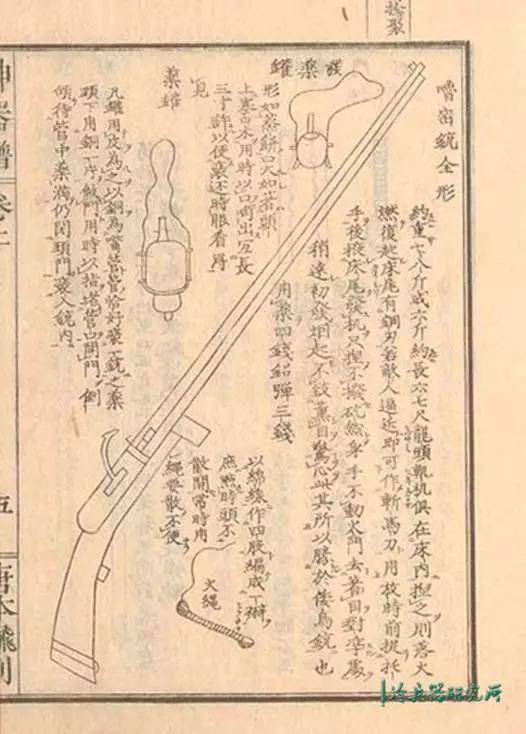 拾聚
嚕密銃全形
約重七八斤或六斤約長六七尺龍頭軌机俱在床内捏之則落火
燃復起床尾有鋼刃若敵人逼近即可作斬馬刀用放時前捉托
手後掖床尾發机只捏不撥砣然身手不動火門去著目對準處
稍遠初發烟起不致薰目驚心此其所以勝於倭鳥銃也
用藥四錢鉛彈三錢
發藥罐
形如蒸餅口大如
上塞口木用時以口啣出
長
三寸許以便裝
時眼看得
見
藥罐
凡罐用皮為之以銅為嘴管管恰好裝一銃之藥
頭下用銅一片做門用時以指堵管口開門倒
傾待管中藥滿仍閉頭門裝入銃内
以綿線作四股編成一辮
庶燃時頭不
散開常時用
繩要散不便
火繩
神器譜
五
唐本飜刻
冷兵器研究所